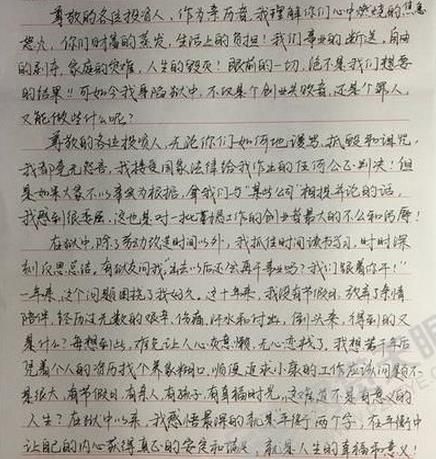 尊敬的各位投资人,作为亲历者,我理解你们心中燃烧的焦急
怒火,你们财富的蒸发,生活上的负担!我们事业的断送,自由
的剥夺,家庭的灾难,人生的毁灭!眼前的一切,绝不是我们想要
的结果!!可如今我身陷狱中,不仅是个创业失败者,还是个罪人,
又能做些什么呢?
尊敬的各位投资人,无论你们如何地谩骂,抵毁和诅咒,
我都毫无怨言,我接受国家法律给我作出的任何公正判决!但
是如果大家不以事实为根据,拿我们与"某些公司"相提并论的话,
我感到很委屈,这也是对一批勤恳工作的创业者最大的不公和侮辱!
在狱中,除了劳动改造时间以外,我抓住时间读书学习,时时深
刻反思总结。有狱友问我"出去以后还会再干事业吗?我们跟着你干!"
一年来,这个问题困扰了我好久,这十年来,我没有节假日,放弃了亲情
陪伴,经历过无数的艰辛,伤痛,汗水和付出,倒头来,得到的又
是什么?每想到此,难免让人心灰意懒,无心恋栈了,我想若干年后
凭着个人的资历找个养家糊口,顺便追求小菜的工作应该问题不
是很大,有节假日,有亲人,有孩子,有幸福时光,这难道不是有意义的
人生?在狱中以来,我感悟最深的就是平衡两个字,在平衡中
让自己的内心获得真正的安定和满足,就是人生的幸福和意义!